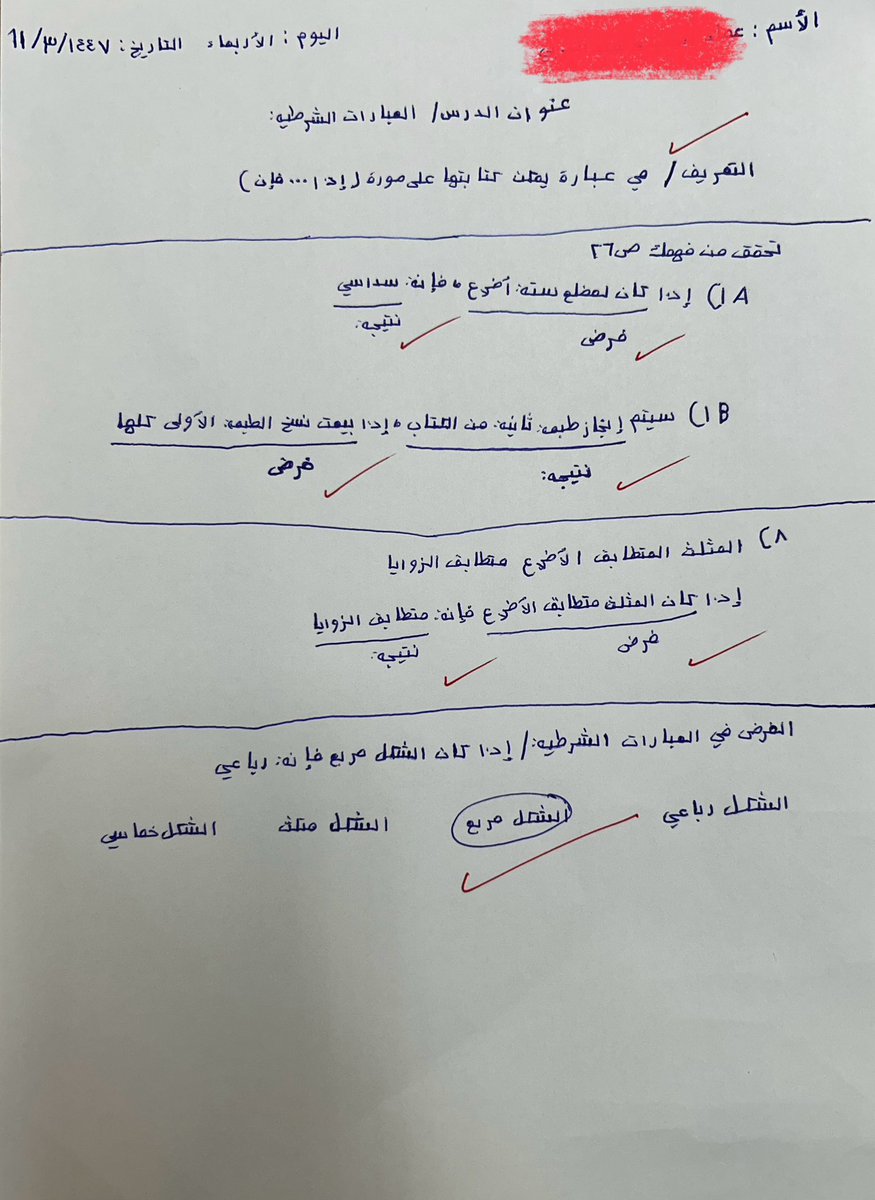 الأسم :
اليوم : الأربعاء التاريخ : ١٤٤٧/٣/١١
عنوان الدرس / العبارات الشرطيه:
التعريف / هي عبارة يمكن كتابتها على صورة (إذا ... فإن)
تحقق من فهمك ص٢٦
1A) إذا كان لمضلع ستة أضرع ، فإنه سداسي
فرض نتيجة
1B) سيتم إنجاز طبعة ثانية من الكتاب ، إذا بيعت نسخ الطبعة الأولى كلها
نتيجة فرض
٨) المثلث المتطابق الأضرع متطابق الزوايا
إذا كان المثلث متطابق الأضرع فإنه متطابق الزوايا
فرض نتيجة
الفرض في العبارات الشرطية / إذا كان الشكل مربع فإنه رباعي
الشكل رباعي الشكل مربع الشكل مثلث الشكل خماسي